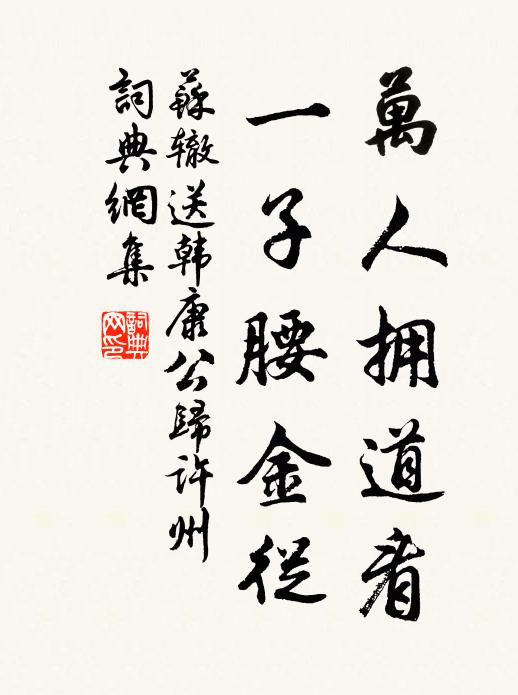 萬人拥道看
一子腰金從
蘇辙送韩康公歸许州
詞典網集
詞典網印